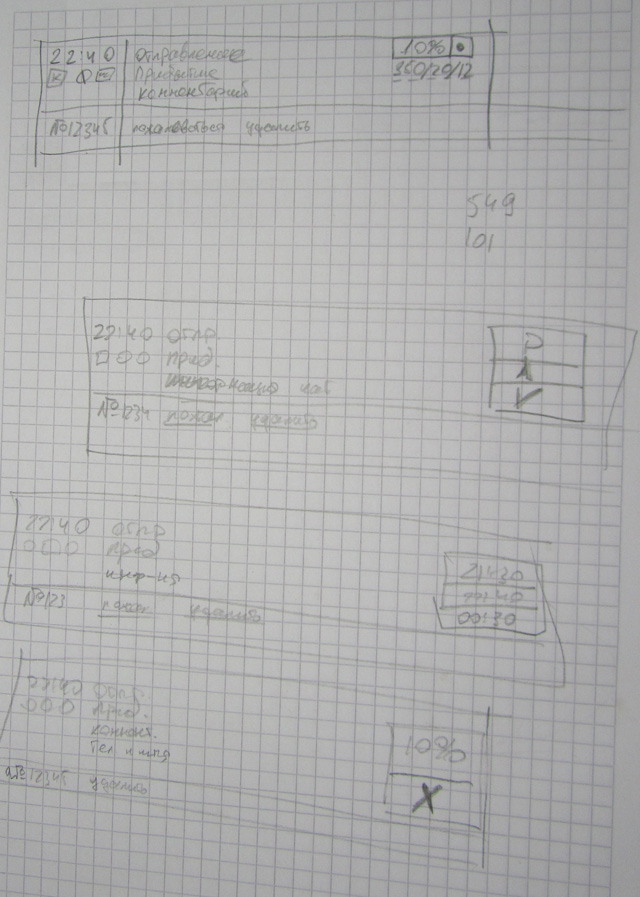 22:40 Отправление 10%
Прибытие 350/20/12
комментарий
№12345 пожаловаться удалить
549
101
22:40 отпр. P
приб.
V
№1234 пожал удалить
22:40 отпр
приб 21:30
инф-ия 00:40
№123 пожал удалить 00:30
22:40 отпр.
приб. 10%
коммент.
Тел и имя X
№12345 удалить